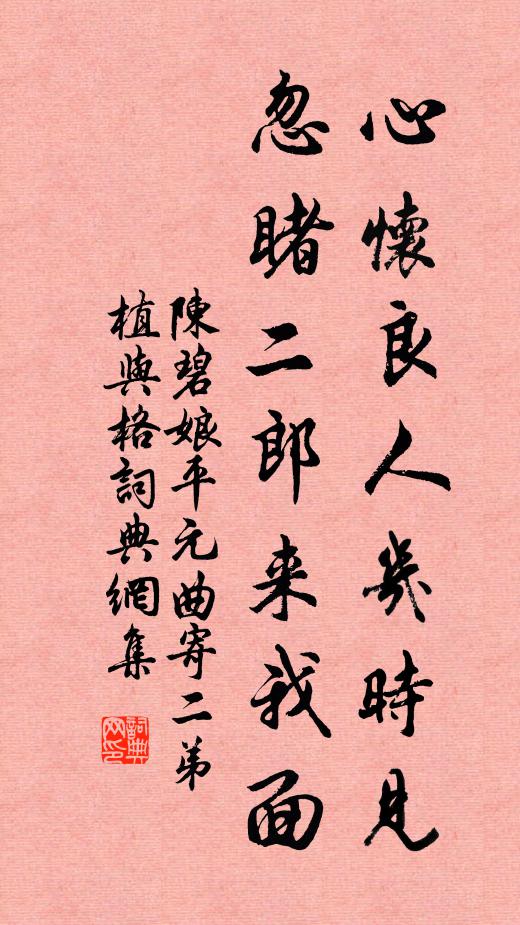 心懷良人幾時見
忽睹二郎来我面
陳碧娘平元曲寄二弟
植與格詞典網集
詞典网印